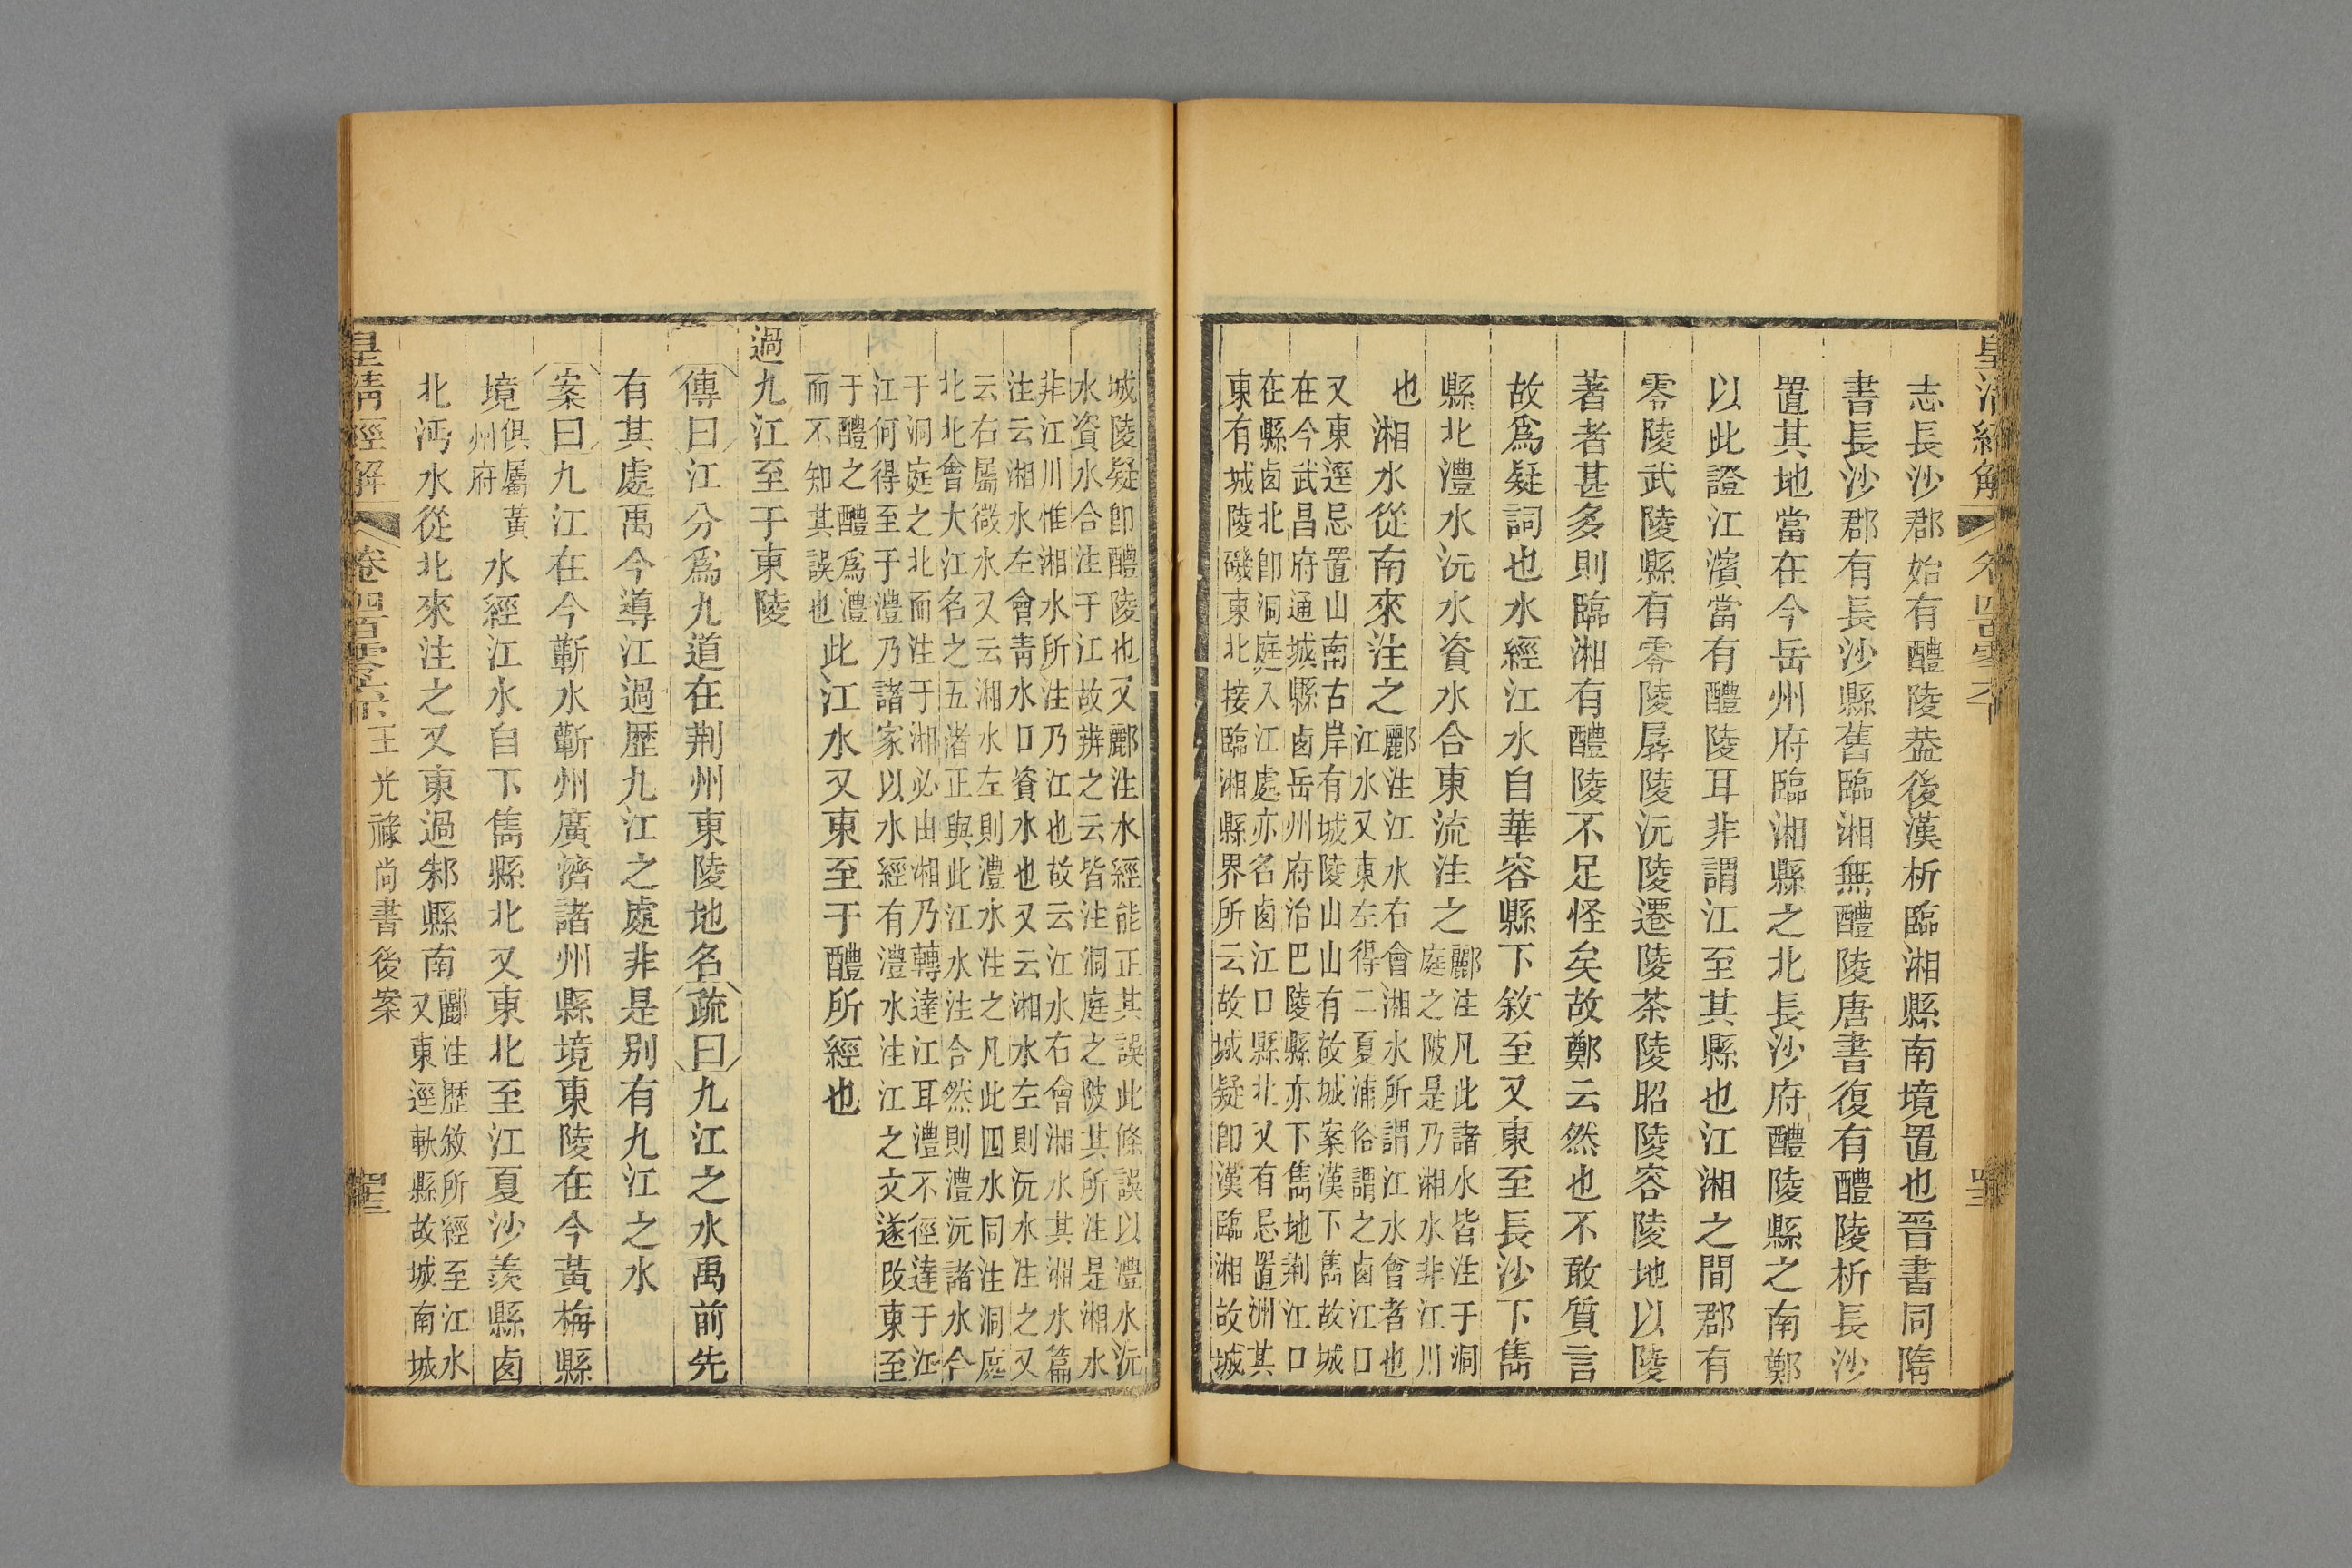 皇清經解
卷四百零六
志長沙郡始有醴陵葢後漢析臨湘縣南境置也晉書同隋
書長沙郡有長沙縣舊臨湘無醴陵唐書復有醴陵析長沙
置其地當在今岳州府臨湘縣之北長沙府醴陵縣之南鄭
以此證江濱當有醴陵耳非謂江至其縣也江湘之間郡有
零陵武陵縣有零陵孱陵沅陵遷陵茶陵昭陵容陵地以陵
著者甚多則臨湘有醴陵不足怪矣故鄭云然也不敢質言
故爲疑詞也水經江水自華容縣下敘至又東至長沙下雋
縣北澧水沅水資水合東流注之
酈注凡此諸水皆注于洞
庭之陂是乃湘水非江川
也
湘水從南來注之
酈注江水右會湘水所謂江水會者也
江水又東左得二夏浦俗謂之西江口
又東逕忌置山南古岸有城陵山山有故城案漢下雋故城
在今武昌府通城縣西岳州府治巴陵縣亦下雋地荆江口
在縣西北卽洞庭入江處亦名西江口縣北又有忌置洲其
東有城陵磯東北接臨湘縣界所云故城疑卽漢臨湘故城
城陵疑卽醴陵也又酈注水經能正其誤此條誤以澧水沅
水資水合注于江故辨之云皆注洞庭之陂其所注是湘水
非江川惟湘水所注乃江也故云江水右會湘水其湘水篇
注云湘水左會靑水口資水也又云湘水左則沅水注之又
云右屬微水又云湘水左則澧水注之凡此四水同注洞庭
北北會大江名之五渚正與此江水注合然則澧沅諸水今
于洞庭之北而注于湘必由湘乃轉達江耳澧不徑達于江
江何得至于澧乃諸家以水經有澧水注江之文遂改東至
于醴之醴爲澧
而不知其誤也
此江水又東至于醴所經也
過九江至于東陵
傳曰江分爲九道在荆州東陵地名疏曰九江之水禹前先
有其處禹今導江過歷九江之處非是別有九江之水
案曰九江在今蘄水蘄州廣濟諸州縣境東陵在今黃梅縣
境
俱屬黃
州府
水經江水自下雋縣北又東北至江夏沙羨縣西
北沔水從北來注之又東過邾縣南
酈注歷敘所經至江水
又東逕軑縣故城南城
皇清經解
卷四百零六
王光祿尚書後案